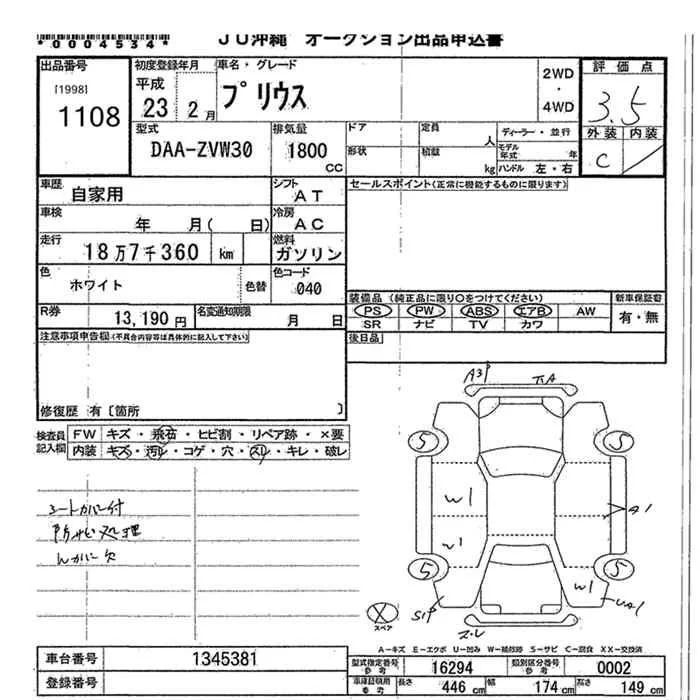 *0004534*
JU沖縄 オークション出品申込書
出品番号
[1998]
1108
初度登録年月
平成
23 2月
車名・グレード
プリウス
2WD
・
4WD
評価点
3.5
外装 内装
C /
型式
DAA-ZVW30
排気量
1800
CC
ドア
定員
人
形状
積載
kg
ディーラー・並行
モデル年式 年
ハンドル 左・右
車歴
自家用
シフト
AT
セールスポイント(正常に機能するものに限ります)
車検
年 月( 日)
冷房
AC
走行
18万7千360 km
燃料
ガソリン
色
ホワイト
色替
色コード
040
R券
13,190円
名変通知期限
月 日
装備品 (純正品に限り○をつけてください)
PS PW ABS エアB AW
SR ナビ TV カワ
新車保証書
有・無
注意事項申告欄(不具合内容等は具体的に記入して下さい)
後日品
修復歴 有〔箇所 〕
検査員記入欄
FW キズ・飛石・ヒビ割・リペア跡・×要
内装 キズ・汚レ・コゲ・穴・スレ・キレ・破レ
シートカバー付
防サビ処理
A3P
5
5
5
5
W1
W1
A1
スペア
A-キズ E-エクボ U-凹み W-補修跡 S-サビ C-腐食 XX-交換済
車台番号 1345381
登録番号
型式指定番号 参考 16294
類別区分番号 参考 0002
車庫証明用 参考
長さ 446 cm
幅 174 cm
高さ 149 cm